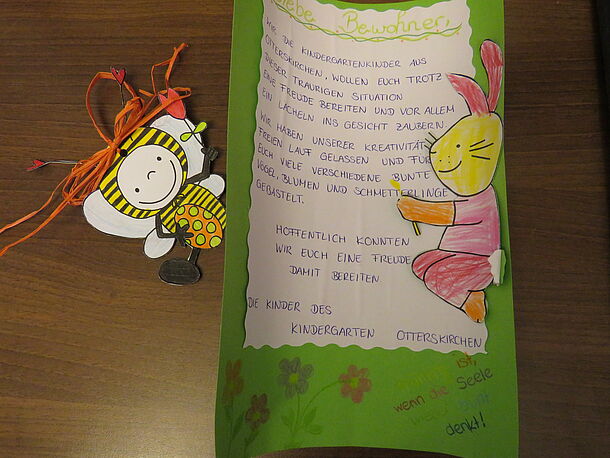 Liebe Bewohner,
WIR DIE KINDERGARTENKINDER AUS
OTTERSKIRCHEN, WOLLEN EUCH TROTZ
DIESER TRAURIGEN SITUATION
EINE FREUDE BEREITEN UND VOR ALLEM
EIN LÄCHELN INS GESICHT ZAUBERN.
WIR HABEN UNSERER KREATIVITÄT
FREIEN LAUF GELASSEN UND FÜR
EUCH VIELE VERSCHIEDENE BUNTE
VÖGEL, BLUMEN UND SCHMETTERLINGE
GEBASTELT.
HOFFENTLICH KONNTEN
WIR EUCH EINE FREUDE
DAMIT BEREITEN.
DIE KINDER DES
KINDERGARTEN OTTERSKIRCHEN
ist,
wenn die Seele
bunt
denkt!